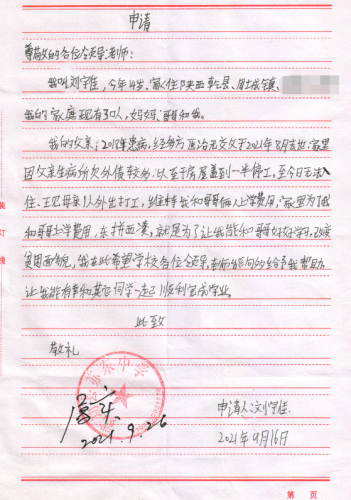 申请
尊敬的各位领导、老师:
我叫刘学佳,今年14岁,家住陕西乾县、周城镇、
我的家庭现有3口人,妈妈、哥和我。
我的父亲,2018年患病,经多方医治无效于2021年8月去世,家里
因父亲生病所欠外债较多,以至于房屋盖到一半停工,至今日无法入
住,现母亲1人外出打工,维持我和哥俩人上学费用,家里为了我
和哥上学费用,东拼西凑,就是为了让我能和哥好好学习,改变
贫困面貌,我在此希望学校各位领导、老师能向的给予我帮助
让我能有幸和其他同学一起顺利完成学业。
此致
敬礼
中学
属实
2021.9.26
申请人:刘学佳
2021年9月16日
第 页
装
订
线